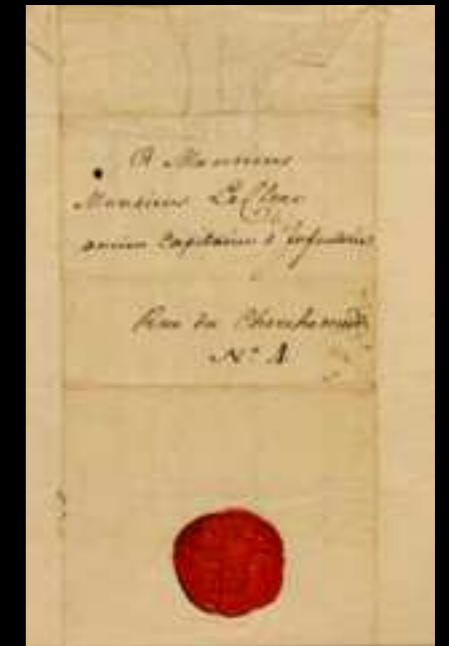 A Monsieur
Monsieur Le Clerc
ancien Capitaine d'infanterie
Rue du Cherchemidi
N° 1